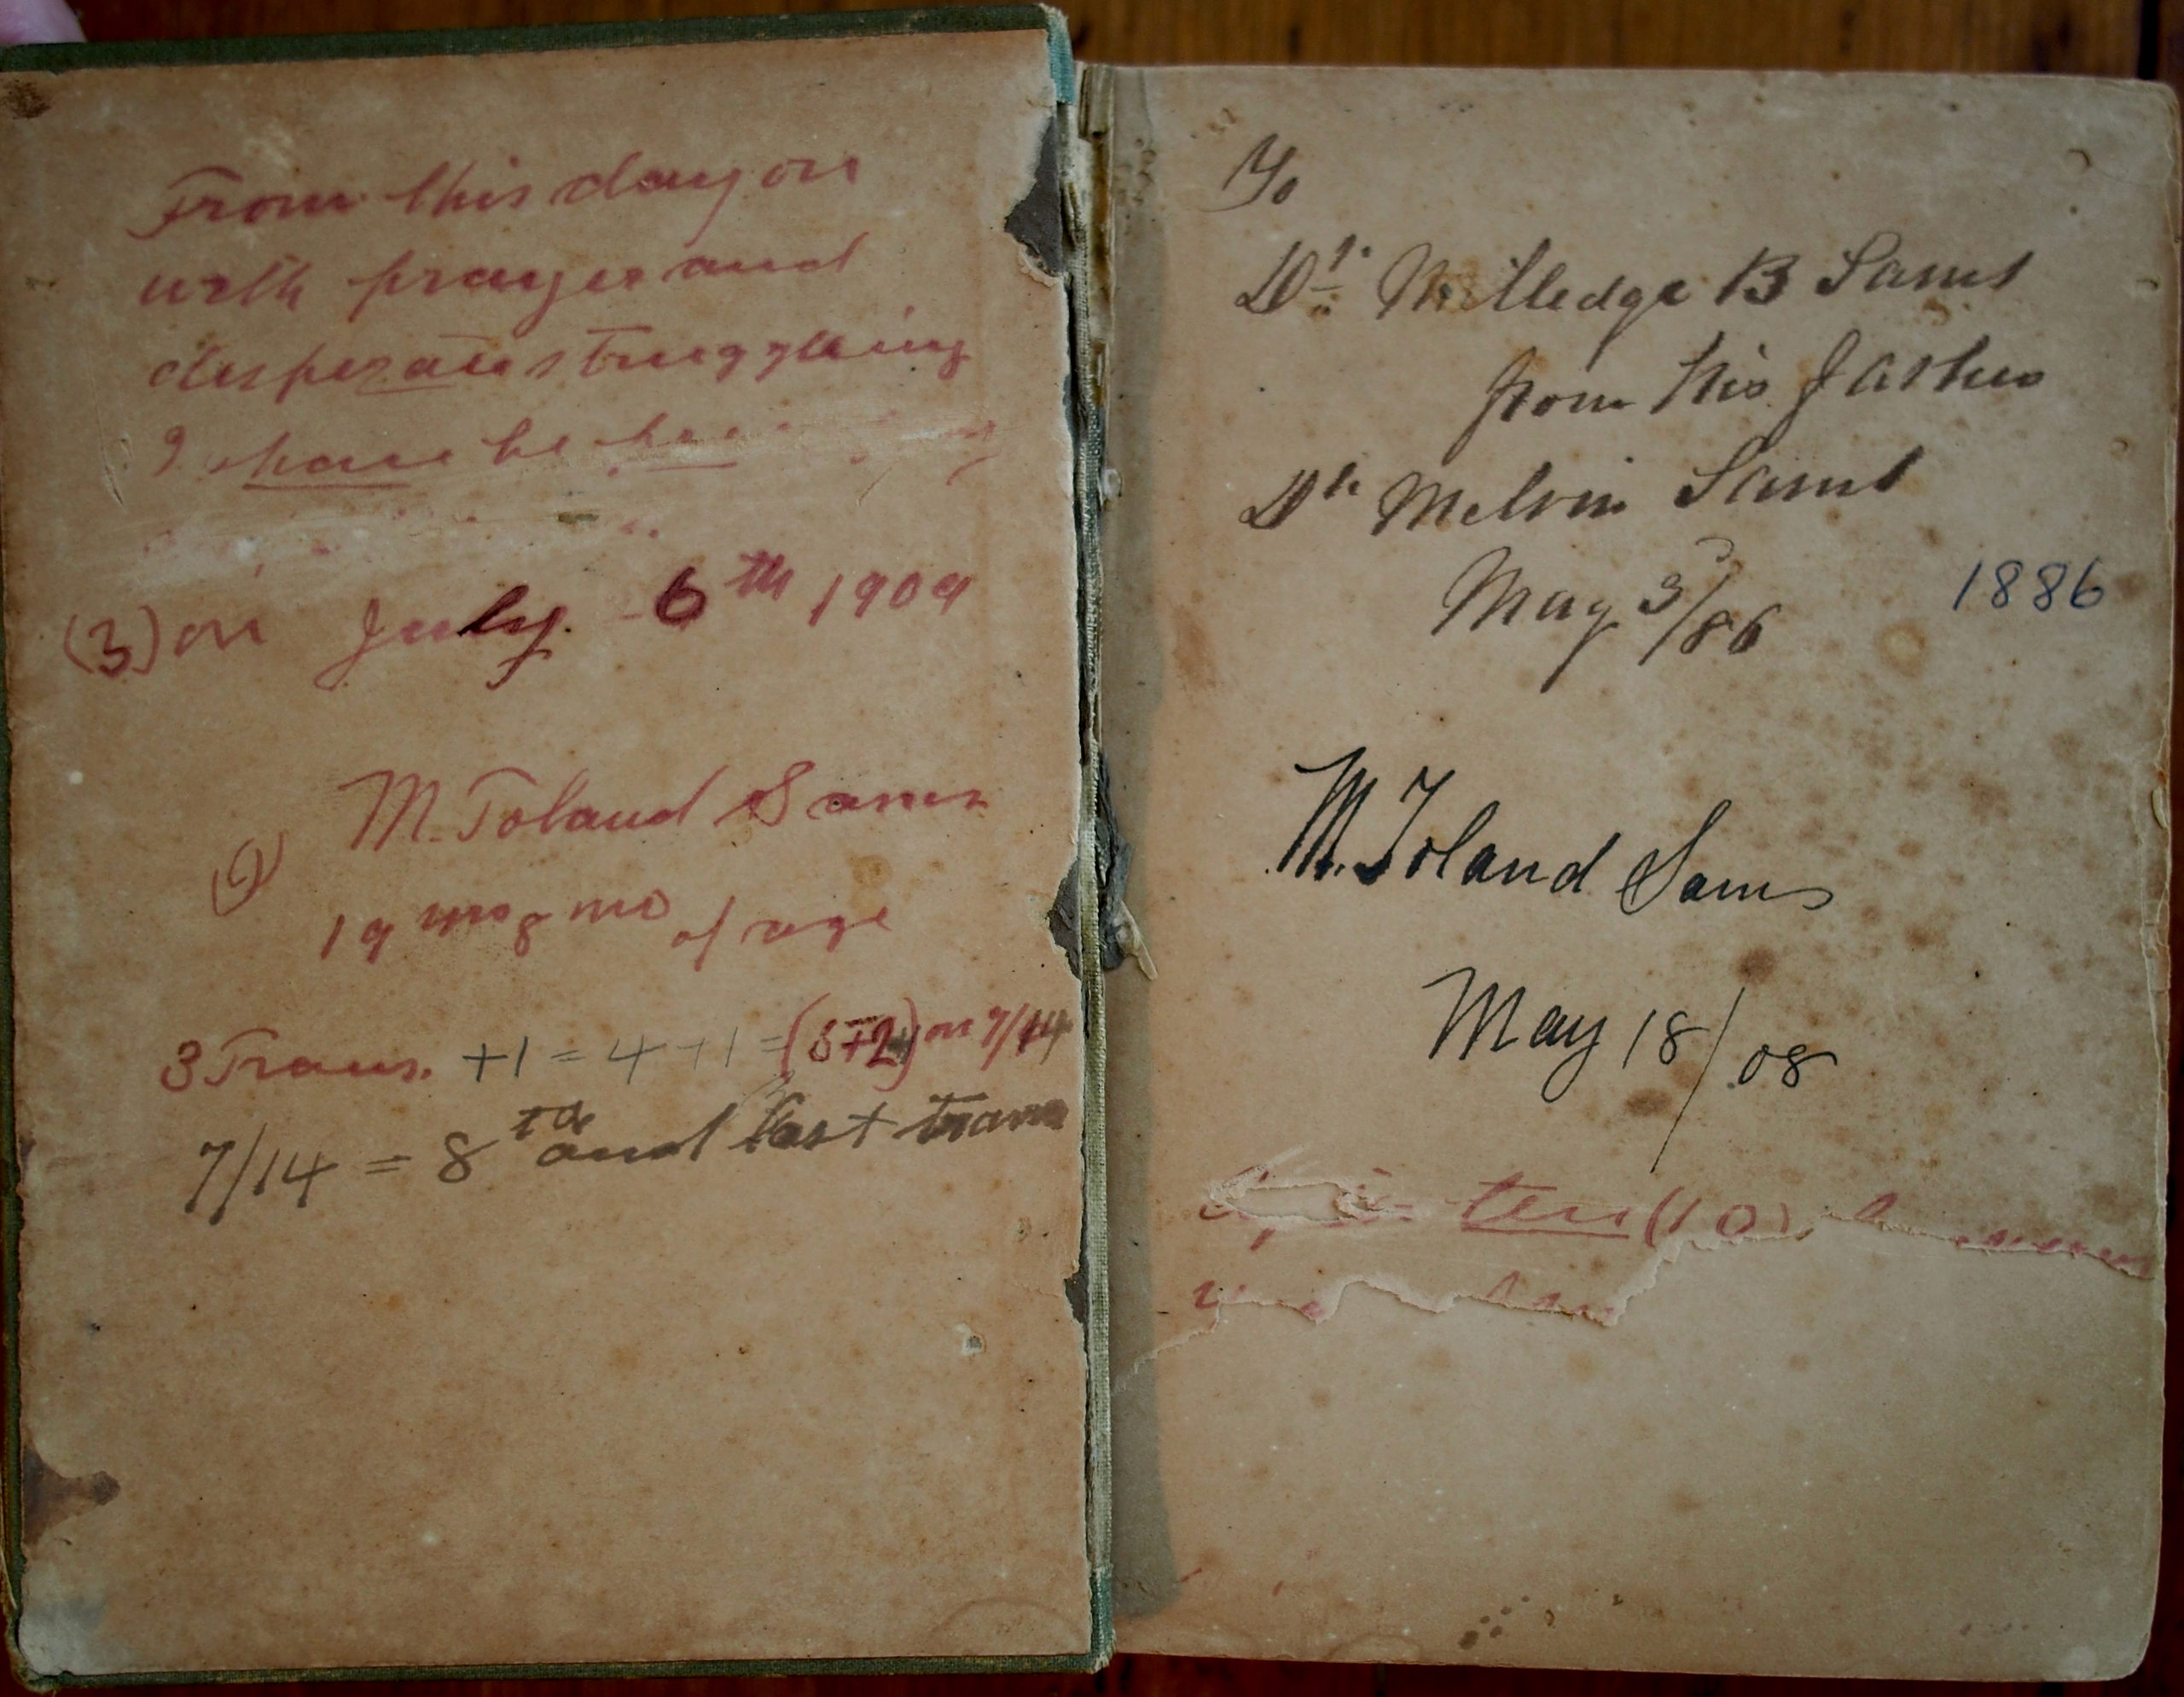 From this day on
with prayer and
desperate struggling
I shall be
(3) on July 6th 1909
M. Toland Sams
19 yrs 8 mo of age
3 Trans. +1 = 4 +1 = (5+2) on 7/14
7/14 = 8th and last trans
To
Dr. Milledge B Sams
from his Father
Dr. Melvin Sams
May 3/86
1886
M. Toland Sams
May 18/08
ten (10)